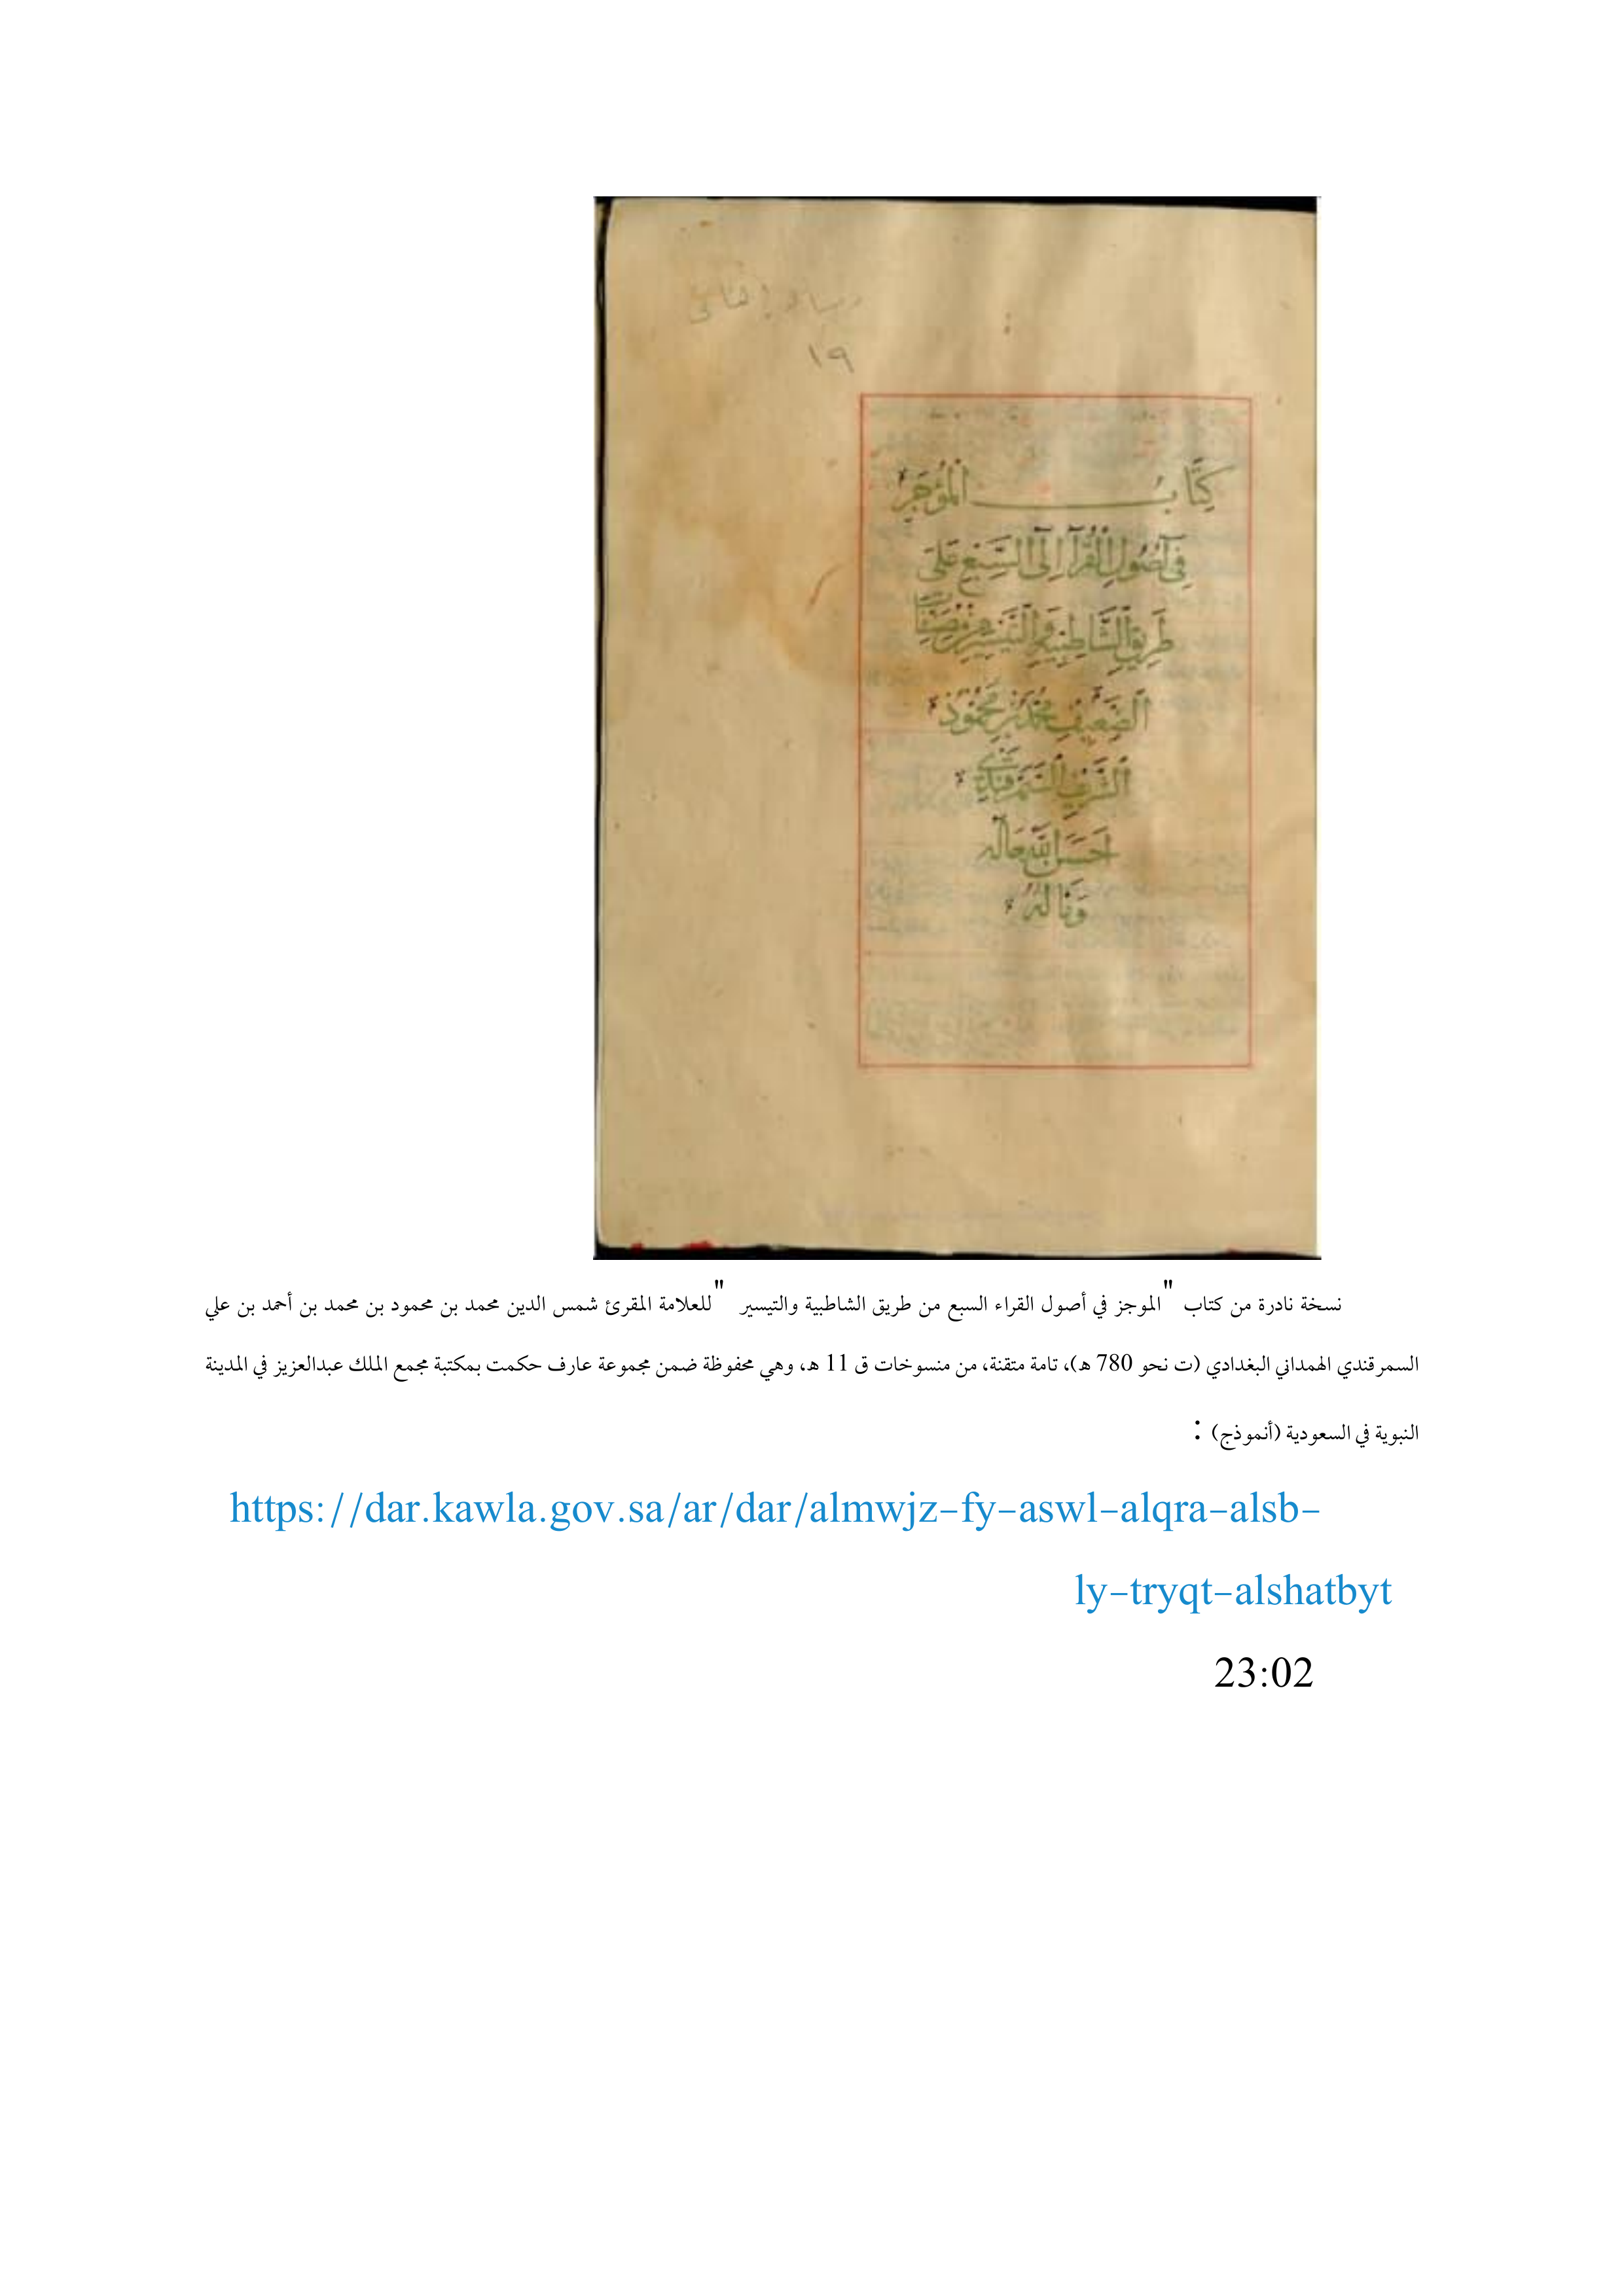 ١٩
كِتَابُ المُوْجَزِ
فِي أُصُولِ الْقُرَّآءِ السَّبْعِ عَلَى
طَرِيقِ الشَّاطِبِيَّةِ وَالتَّيْسِيرِ مِنْ مُصَنَّفَاتِ
الضَّعِيفِ مُحَمَّد بْنِ مَحْمُود بْنِ
الشَّرَفِ السَّمَرْقَنْدِي
اَحْسَنَ اللهُ حَالَهُ
وَنَالَهُ
نسخة نادرة من كتاب "الموجز في أصول القراء السبع من طريق الشاطبية والتيسير" للعلامة المقرئ شمس الدين محمد بن محمود بن محمد بن أحمد بن علي
السمرقندي الهمداني البغدادي (ت نحو 780 هـ)، تامة متقنة، من منسوخات ق 11 هـ، وهي محفوظة ضمن مجموعة عارف حكمت بمكتبة مجمع الملك عبدالعزيز في المدينة
النبوية في السعودية (أنموذج) :
https://dar.kawla.gov.sa/ar/dar/almwjz-fy-aswl-alqra-alsb-
ly-tryqt-alshatbyt
23:02